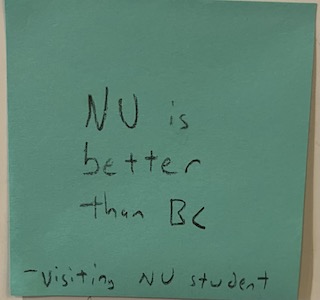 NU is
better
than BC
-Visiting NU student